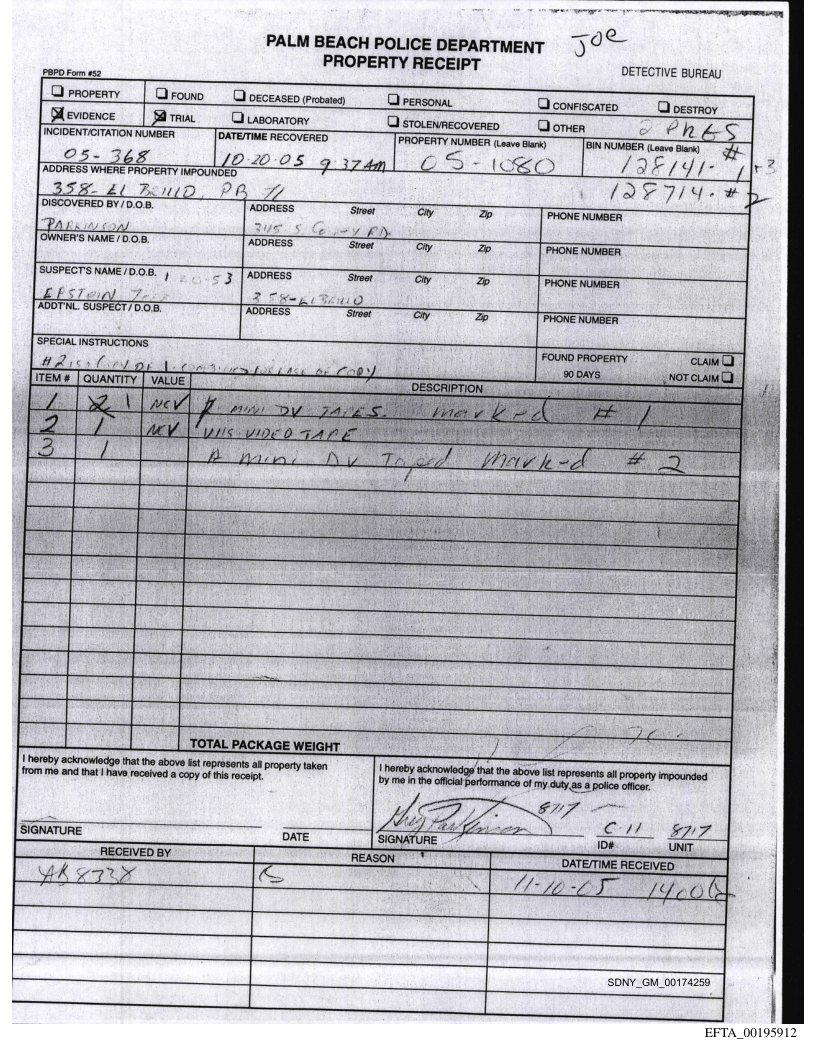 PALM BEACH POLICE DEPARTMENT
Joe
PROPERTY RECEIPT
PBPD Form #52
DETECTIVE BUREAU
PROPERTY FOUND DECEASED (Probated) PERSONAL CONFISCATED DESTROY
EVIDENCE TRIAL LABORATORY STOLEN/RECOVERED OTHER 2 PKGS
INCIDENT/CITATION NUMBER DATE/TIME RECOVERED PROPERTY NUMBER (Leave Blank) BIN NUMBER (Leave Blank)
05-368 10-20-05 9:37AM 05-1080 128141-#1+3
ADDRESS WHERE PROPERTY IMPOUNDED
358- El Brillo, PB Fl 128714-#2
DISCOVERED BY / D.O.B. ADDRESS Street City Zip PHONE NUMBER
PARKINSON 345 S County RD.
OWNER'S NAME / D.O.B. ADDRESS Street City Zip PHONE NUMBER
SUSPECT'S NAME / D.O.B. 1 20-53 ADDRESS Street City Zip PHONE NUMBER
EPSTEIN 358-El Brillo
ADDT'NL. SUSPECT / D.O.B. ADDRESS Street City Zip PHONE NUMBER
SPECIAL INSTRUCTIONS FOUND PROPERTY CLAIM
#2 is copy of 1- 90 DAYS NOT CLAIM
ITEM # QUANTITY VALUE DESCRIPTION
1 2 1 NCV MINI DV TAPES. marked #1
2 1 NCV VHS VIDEO TAPE
3 1 A mini DV Taped marked #2
TOTAL PACKAGE WEIGHT
I hereby acknowledge that the above list represents all property taken
from me and that I have received a copy of this receipt.
I hereby acknowledge that the above list represents all property impounded
by me in the official performance of my duty as a police officer.
Greg Parkinson 8717 C-11 8717
SIGNATURE DATE SIGNATURE ID# UNIT
RECEIVED BY REASON DATE/TIME RECEIVED
AB8338 11-10-05 1400
SDNY_GM_00174259
EFTA_00195912